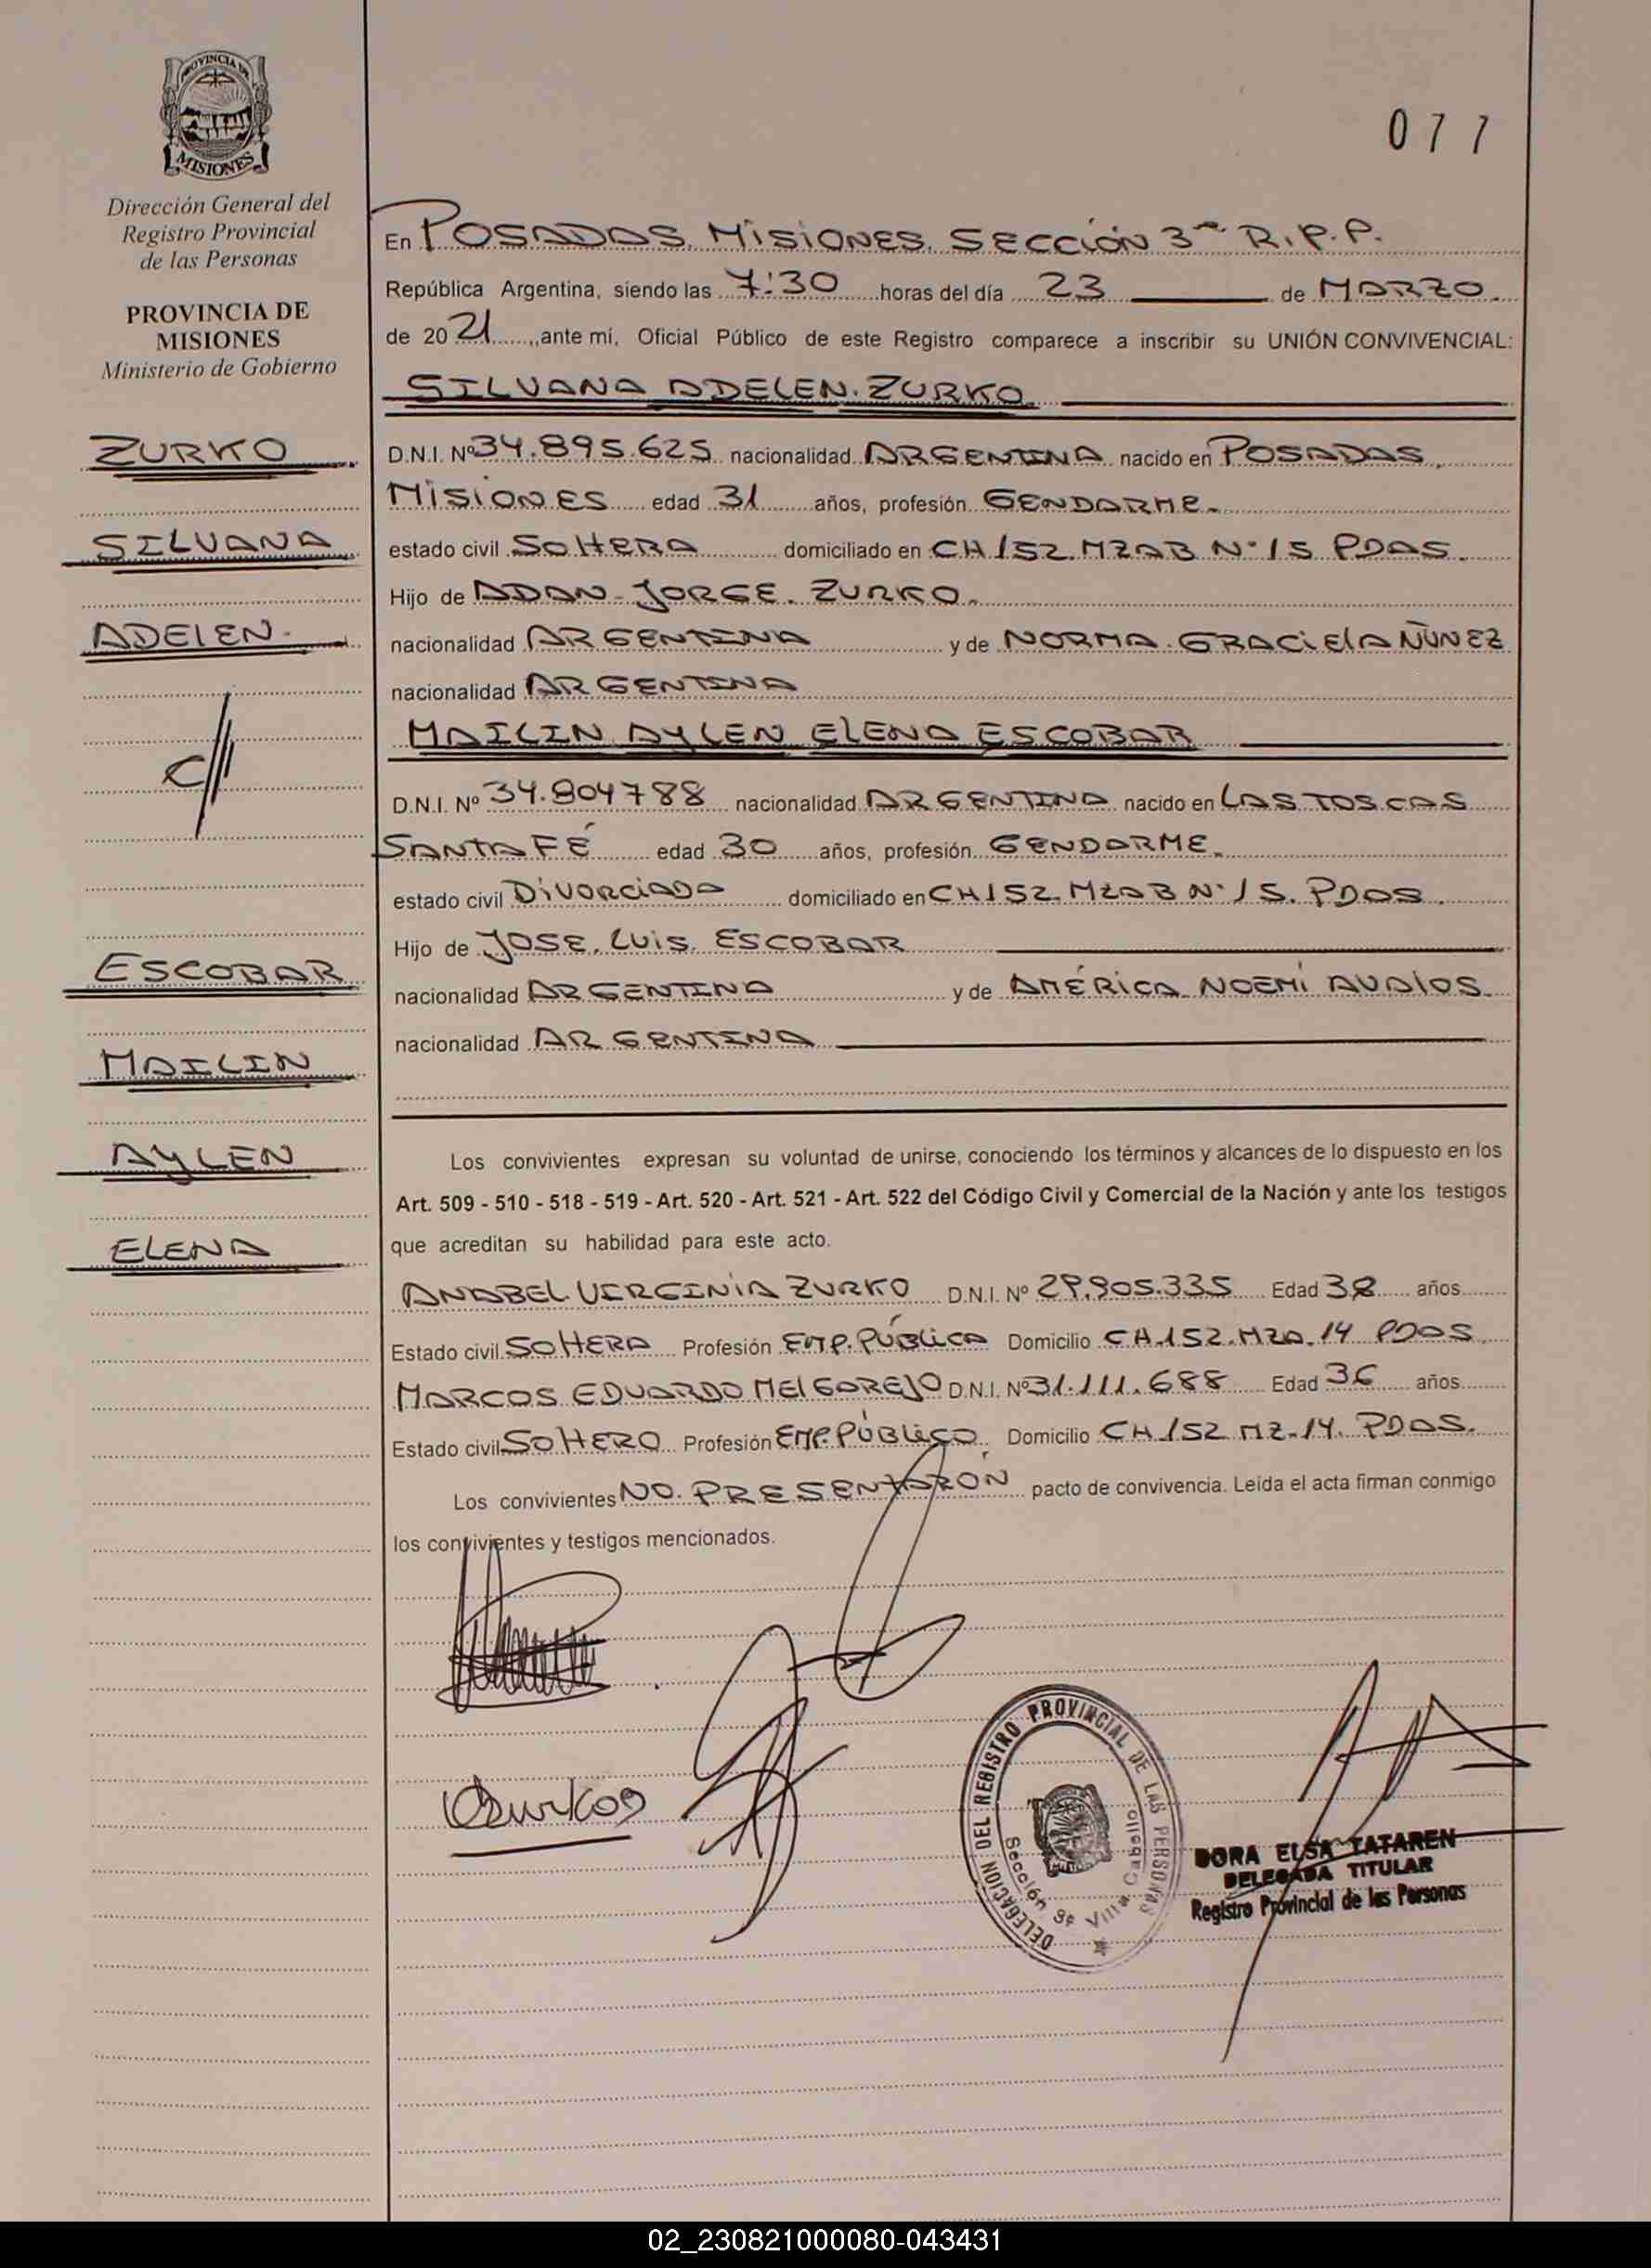 PROVINCIA DE
MISIONES
Dirección General del
Registro Provincial
de las Personas
PROVINCIA DE
MISIONES
Ministerio de Gobierno
ZURKO
SILVANA
ADELEN.
ESCOBAR
MAILIN
AYLEN
ELENA
077
En POSADAS, MISIONES. SECCIÓN 3ra R.P.P.
República Argentina, siendo las 7:30 horas del día 23 de MARZO.
de 2021, ante mí, Oficial Público de este Registro comparece a inscribir su UNIÓN CONVIVENCIAL:
SILVANA ADELEN. ZURKO
D.N.I. Nº 34.895.625 nacionalidad ARGENTINA nacido en POSADAS,
MISIONES edad 31 años, profesión GENDARME.
estado civil SOLTERA domiciliado en CH 152. MZAB N° 15 PDAS.
Hijo de ADAN JORGE. ZURKO.
nacionalidad ARGENTINA y de NORMA. GRACIELA ÑUNEZ
nacionalidad ARGENTINA
MAILIN AYLEN ELENA ESCOBAR
D.N.I. Nº 34.904788 nacionalidad ARGENTINA nacido en LAS TOSCAS
SANTA FÉ edad 30 años, profesión GENDARME.
estado civil DIVORCIADA domiciliado en CH 152. MZAB N° 15. PDAS.
Hijo de JOSE. LUIS. ESCOBAR
nacionalidad ARGENTINA y de AMÉRICA NOEMÍ AVALOS.
nacionalidad ARGENTINA
Los convivientes expresan su voluntad de unirse, conociendo los términos y alcances de lo dispuesto en los
Art. 509 - 510 - 518 - 519 - Art. 520 - Art. 521 - Art. 522 del Código Civil y Comercial de la Nación y ante los testigos
que acreditan su habilidad para este acto.
ANABEL VIRGINIA ZURKO D.N.I. Nº 29.905.335 Edad 38 años
Estado civil SOLTERA Profesión EMP. PÚBLICA Domicilio CH 152. MZA. 14 PDAS.
MARCOS EDUARDO MELGAREJO D.N.I. Nº 31.111.688 Edad 36 años
Estado civil SOLTERO Profesión EMP. PÚBLICO Domicilio CH 152 MZ. 14. PDAS.
Los convivientes NO. PRESENTARÓN pacto de convivencia. Leída el acta firman conmigo
los convivientes y testigos mencionados.
DELEGACIÓN DEL REGISTRO PROVINCIAL DE LAS PERSONAS
Sección 3ª Villa Cabello
DORA ELSA TATAREN
DELEGADA TITULAR
Registro Provincial de las Personas
02_230821000080-043431